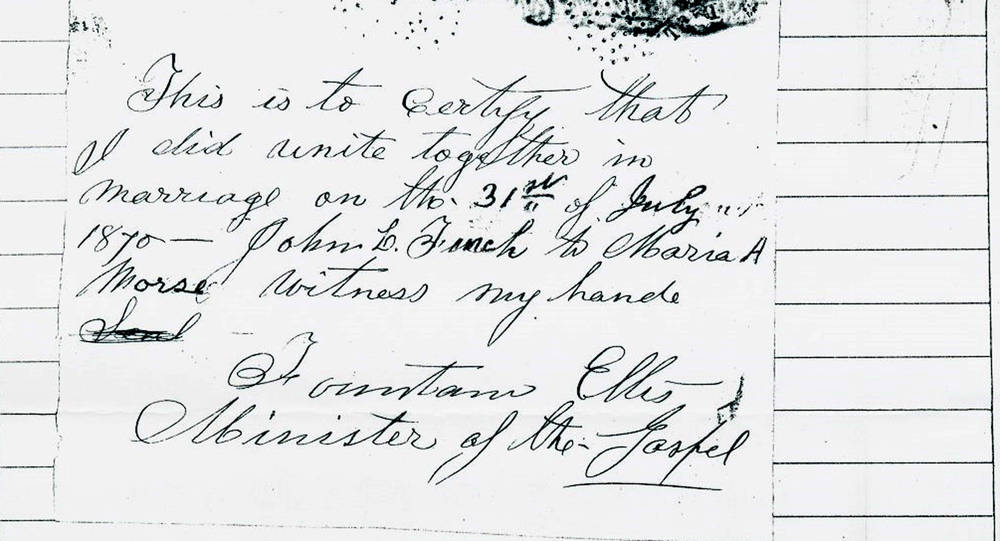 This is to Certify that
I did unite together in
marriage on the 31st of July
1870 — John L. Finch to Maria A
Morse witness my hande
Fountain Ellis
Minister of the Gospel